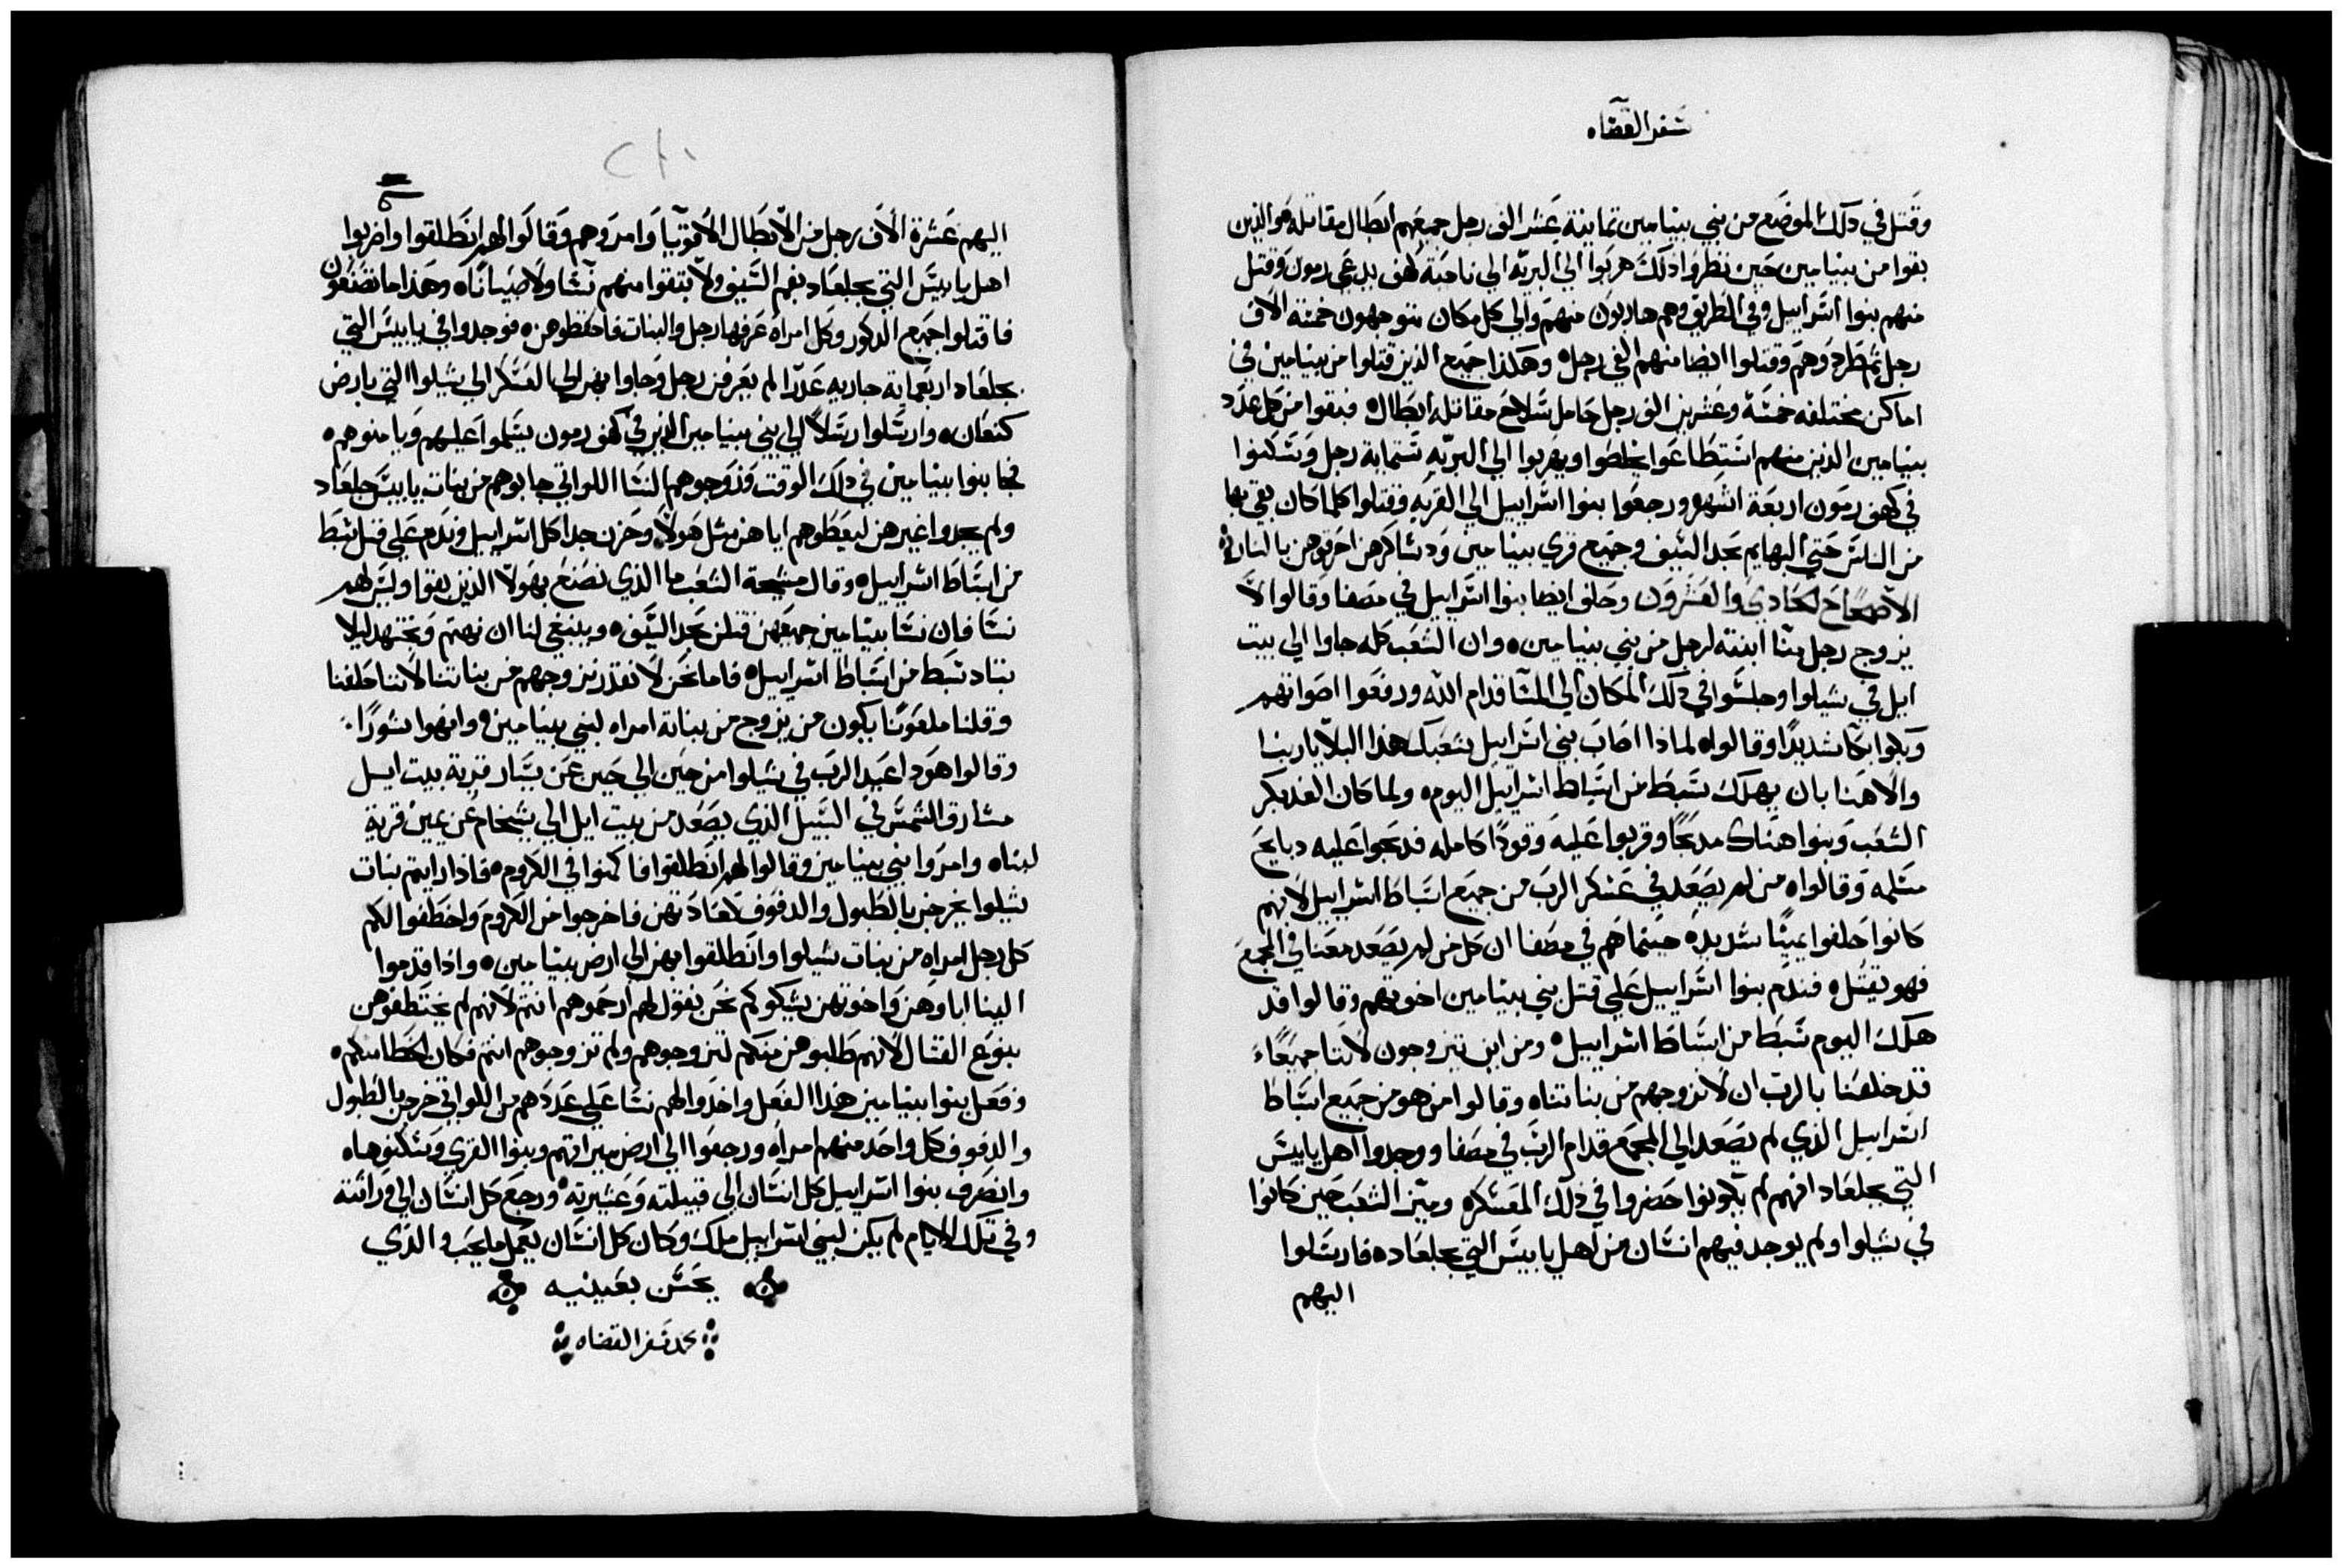 سفر القضاه
وقتل في دلك الموضع من بني بينيامين تمانية عشر الف رجل جميعهم ابطال مقاتله فوالدين
بقوا من بينيامين حين نظروا دلك هربوا الي البريه الي ناحية كهف يدعي رمون وقتل
منهم بنوا اسراييل وفي الطريق وهم هاربون منهم والي كل مكان يتوجهون خمسة الاف
رجل تم طردوهم وقتلوا ايضا منهم الفي رجل ه وهكذا جميع الذين قتلوا من بينيامين في
اماكن مختلفه خمسة وعشرين الف رجل حامل سلاح مقاتله ابطال ه فبقوا من كل عدد
بينيامين الدين منهم استطاعوا يخلصوا ويهربوا الي البريه ستماية رجل وسكنوا
في كهف رمون اربعة اشهر ورجعوا بنوا اسراييل الي القريه وقتلوا كلما كان بقي بها
من الناس حتي البهايم بحد السيف وجميع قري بينيامين ودساكرهن احرقوهن بالنار
الاصحاح الحادي والعشرون وحلف ايضا بنوا اسراييل في مصفا وقالوا لا
يزوج رجل منا ابنته لرجل من بني بينيامين ه وان الشعب كله جاوا الي بيت
ايل في شيلوا وجلسوا في دلك المكان الي المسا قدام الله ورفعوا اصواتهم
وبكوا بكا شديدا وقالوا ه لماذا اصاب بني اسراييل شعبك هذا البلا يا ربنا
والاهنا بان يهلك سبط من اسباط اسراييل اليوم ه ولما كان الغد بكر
الشعب وبنوا هناك مدبحا وقربوا عليه وقودا كامله فدبحوا عليه دبايح
سلمه وقالوا ه من لم يصعد في عسكر الرب من جميع اسباط اسراييل لانهم
كانوا حلفوا يمينا شديده حينما هم في مصفا ان كل من لم يصعد معنا في المجمع
فهو يقتل ه فندم بنوا اسراييل علي قتل بني بينيامين اخوتهم وقالوا قد
هلك اليوم سبط من اسباط اسراييل ه ومن اين يتزوجون لاننا جميعا
قد حلفنا بالرب ان لا نزوجهم من بناتنا ه وقالوا من هو من جميع اسباط
اسراييل الذي لم يصعد الي المجمع قدام الرب في مصفا ووجدوا اهل يابيس
التي بجلعاد انهم لم يكونوا حضروا في دلك المعسكر ه وميز الشعب حين كانوا
في شيلوا ولم يوجد فيهم انسان من اهل يابيس التي بجلعاد ه فارسلوا
اليهم
٢١٠
اليهم عشرة الاف رجل من الابطال الاقويا وامروهم وقالوا لهم انطلقوا واضربوا
اهل يابيس التي بجلعاد بفم السيف ولا تبقوا منهم نسا ولا صبيانا ه وهذا ما تصنعون
فاقتلوا جميع الدكور وكل امراه عرفها رجل والبنات فاحفظوهن ه فوجدوا في يابيس التي
بجلعاد اربعماية جاريه عذرا لم يعرفن رجل وجاوا بهن الي العسكر الي شيلوا التي بارض
كنعان ه وارسلوا رسلا الي بني بينيامين الذين في كهف رمون يسلموا عليهم ويامنوهم ه
فجا بنوا بينيامين في دلك الوقت وزوجوهم النسا اللواتي جابوهم من بنات يابيس جلعاد
ولم يجدوا غيرهن ليعطوهم اياهن مثل هولا وحزن جدا كل اسراييل وندم علي قتل سبط
من اسباط اسراييل ه وقال مشيخة الشعب ما الذي نصنع بهولا الذين بقوا وليس لهم
نسا فان نسا بينيامين جميعهن قتلن بحد السيف ه وينبغي لنا ان نهتم ونجتهد ليلا
يباد سبط من اسباط اسراييل ه فاما نحن لا نقدر نزوجهم من بناتنا لاننا حلفنا
وقلنا ملعونا يكون من يزوج من بناته امراه لبني بينيامين وانهوا شورا
وقالوا هودا عيد الرب في شيلوا من حين الي حين عن يسار قرية بيت ايل
مشارق الشمس في السبيل الذي يصعد من بيت ايل الي شيخام عن يمين قرية
لبناه وامروا بني بينيامين وقالوا لهم انطلقوا فاكمنوا في الكروم ه فاذا رايتم بنات
شيلوا يخرجن بالطبول والدفوف كعادتهن فاخرجوا من الكروم واخطفوا لكم
كل رجل امراه من بنات شيلوا وانطلقوا بهن الي ارض بينيامين ه واذا قدموا
الينا اباوهن واخوتهن يشكوكم نحن نقول لهم ارحموهم انتم لانهم لم يختطفوهن
بنوع القتال لانهم طلبوهن منكم لتزوجوهم ولم تزوجوهم انتم فكان الخطا منكم ه
وفعل بنوا بينيامين هذا الفعل واخدوا لهم نسا علي عددهم من اللواتي خرجن بالطبول
والدفوف كل واحد منهم امراه ورجعوا الي ارض ميراتهم وبنوا القري وسكنوها ه
وانصرف بنوا اسراييل كل انسان الي قبيلته وعشيرته ورجع كل انسان الي وراتته
وفي تلك الايام لم يكن لبني اسراييل ملك وكان كل انسان يعمل ما يحب والذي
يحسن بعينيه
كمد سفر القضاه